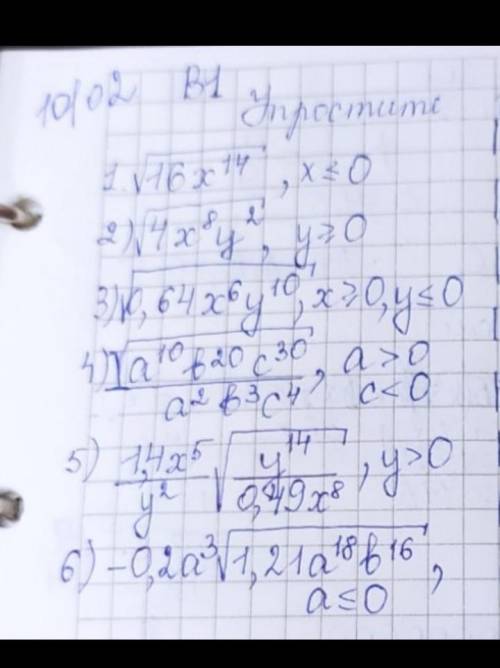 10/02 В1
Упростите
1. √16x¹⁴, x ≤ 0
2) √4x⁸y², y ≥ 0
3) √0,64x⁶y¹⁰, x ≥ 0, y ≤ 0
4) √a¹⁰b²⁰c³⁰ / a²b³c⁴, a > 0
c < 0
5) 1,4x⁵/y² √y¹⁴/0,49x⁸, y > 0
6) -0,2a³√1,21a¹⁸b¹⁶,
a ≤ 0